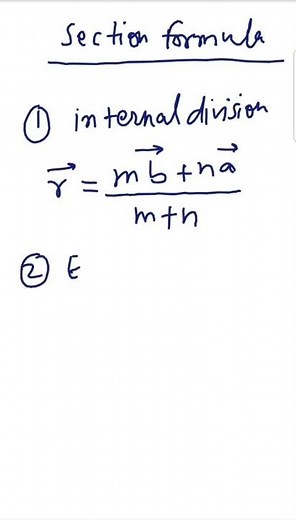 section formula
① internal division
r⃗ = (m b⃗ + n a⃗) / (m + n)
② E